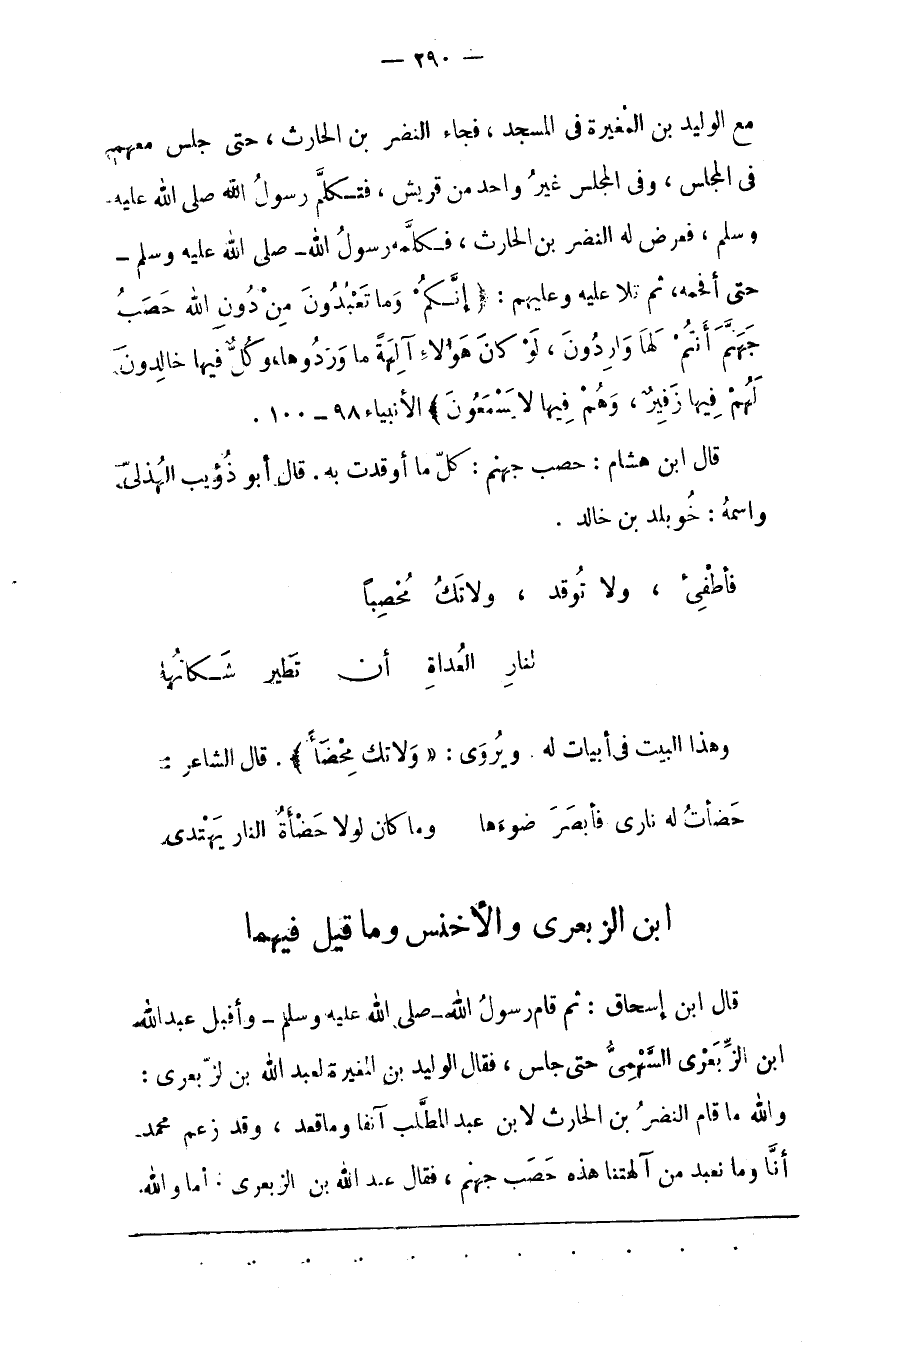 — ٢٩٠ —
مع الوليد بن المْغيرة فى المسجد ، فجاء النضر بن الحارث ، حتى جلس معهم
فى المجلس ، وفى المجلس غيرُ واحد من قريش ، فتـكلَّم رسولُ الله صلى الله عليه
وسلم ، فعرض له النضر بن الحارث ، فـكلَّمه رسولُ الله ــ صلى الله عليه وسلم ــ
حتى أفحمه، ثم تلا عليه وعليهم : ﴿ إنَّـكمُْ وَما تَعْبُدُونَ مِنْ دُونِ الله حَصَبُ
جَهَنَّمَ أَنتُمْ لَهَا وَارِدُونَ ، لَوْ كانَ هَؤُلاءِ آلِهَةً ما وَرَدُوها، وكُلٌّ فيها خالِدونَ
لَهُمْ فِيها زَفِيرٌ ، وَهُمْ فِيها لا يَسْمَعُونَ ﴾ الأنبياء ٩٨ ــ ١٠٠ .
قال ابن هشام : حصب جهنم : كلّ ما أوقدت به . قال أبو ذُؤيب الهُذلىّ
واسمهُ : خُويلد بن خالد .
فأطْفِىْ ، ولا تُوقد ، ولا تَكُ مُحْصِباً
لنارِ العُداةِ أن تَطير شَـكاتُها
وهذا البيت فى أبيات له . ويُروَى : « وَلا تك مِحْضَأً ﴾ . قال الشاعر :
حَضأتُ له نارى فأبصَرَ ضوءها وما كان لولا حَضْأَةُ النار يَهْتدى
ابن الزبعرى والأخنس وما قيل فيهما
قال ابن إسحاق : ثم قام رسولُ الله ــ صلى الله عليه وسلم ــ وأقبل عبد الله
ابن الزِّبَعْرَى السَّهْمِىُّ حتى جلس ، فقال الوليد بن المغيرة لعبد الله بن لزّبعرى :
والله ما قام النضرُ بن الحارث لابن عبد المطَّلب آنفا وما قعد ، وقد زعم محمد
أنَّا وما نعبد من آلهتنا هذه حَصَب جهنم ، فقال عبد الله بن الزبعرى : أما والله